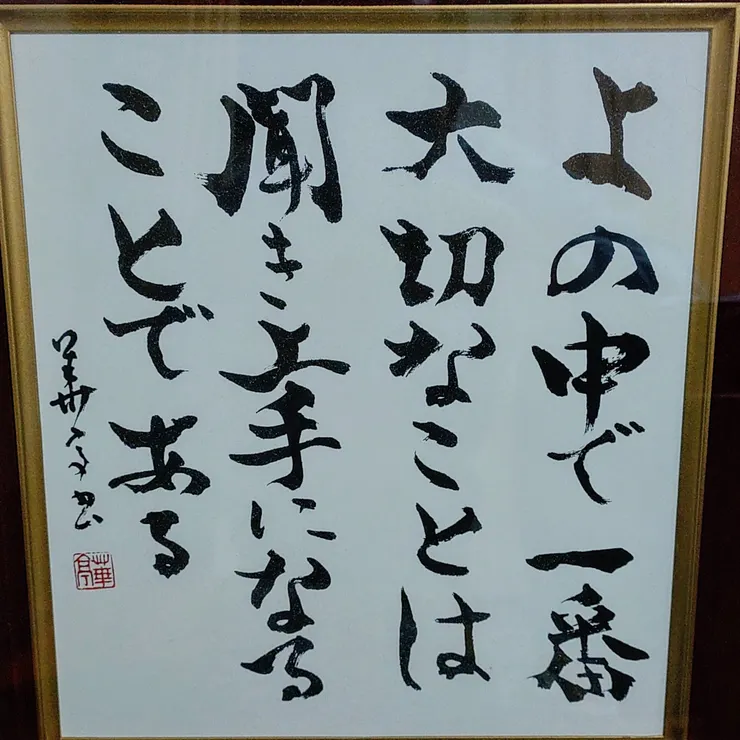 よの中で一番
大切なことは
聞き上手になる
ことである
華亭書
華亭